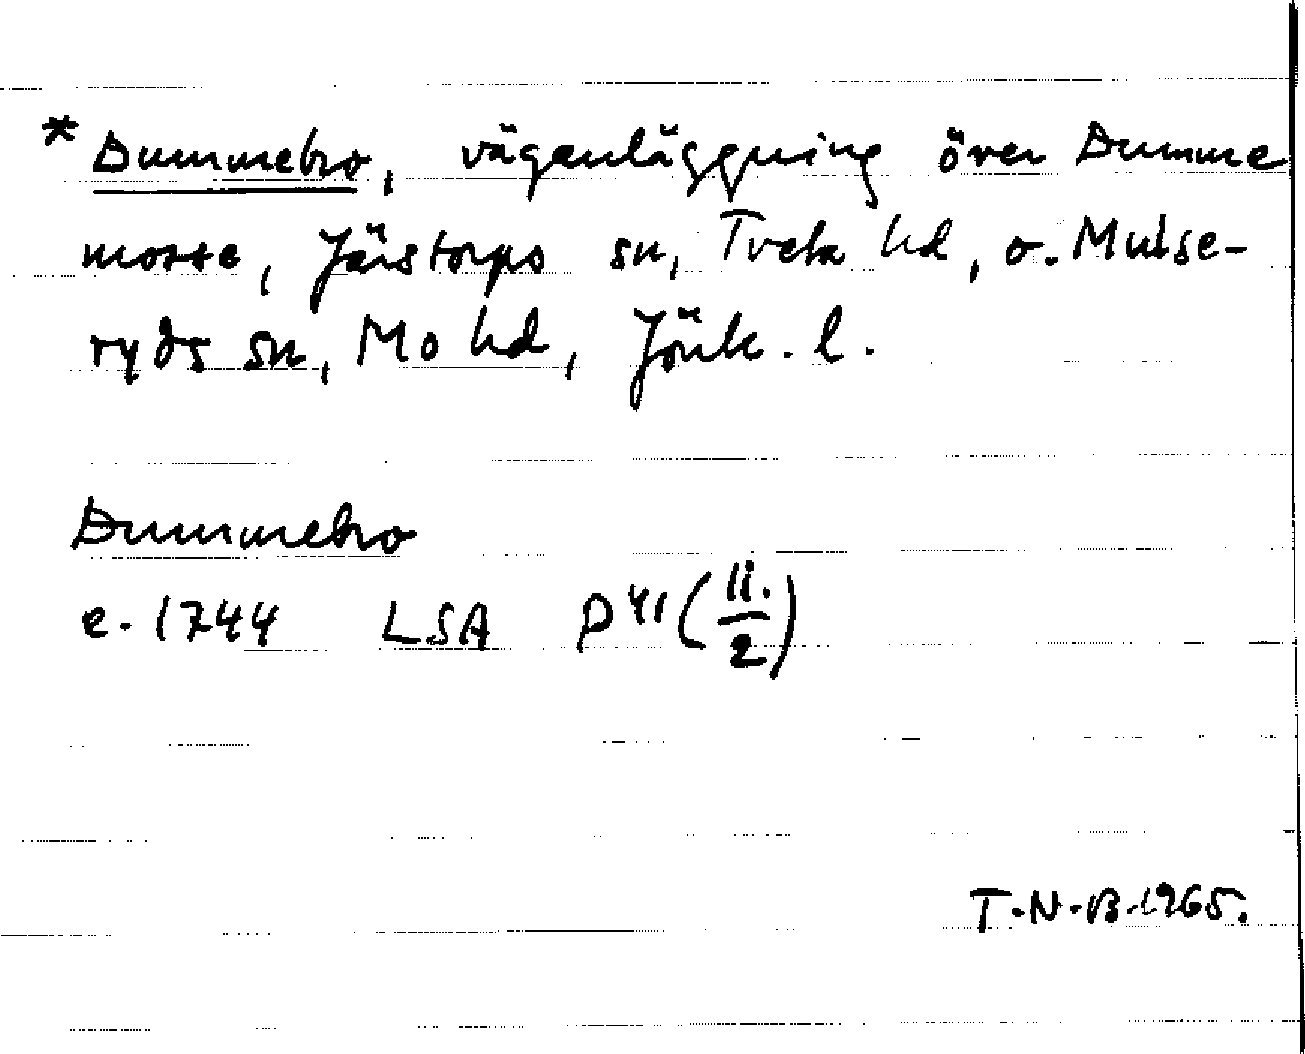 * Dummebro, väganläggning över Dumme
mosse, Järstorps sn, Tveta hd, o. Mulse-
ryds sn, Mo hd, Jönk. l.
Dummebro
e. 1744 LSA P 41 (11./2)
T.N.B. 1965.